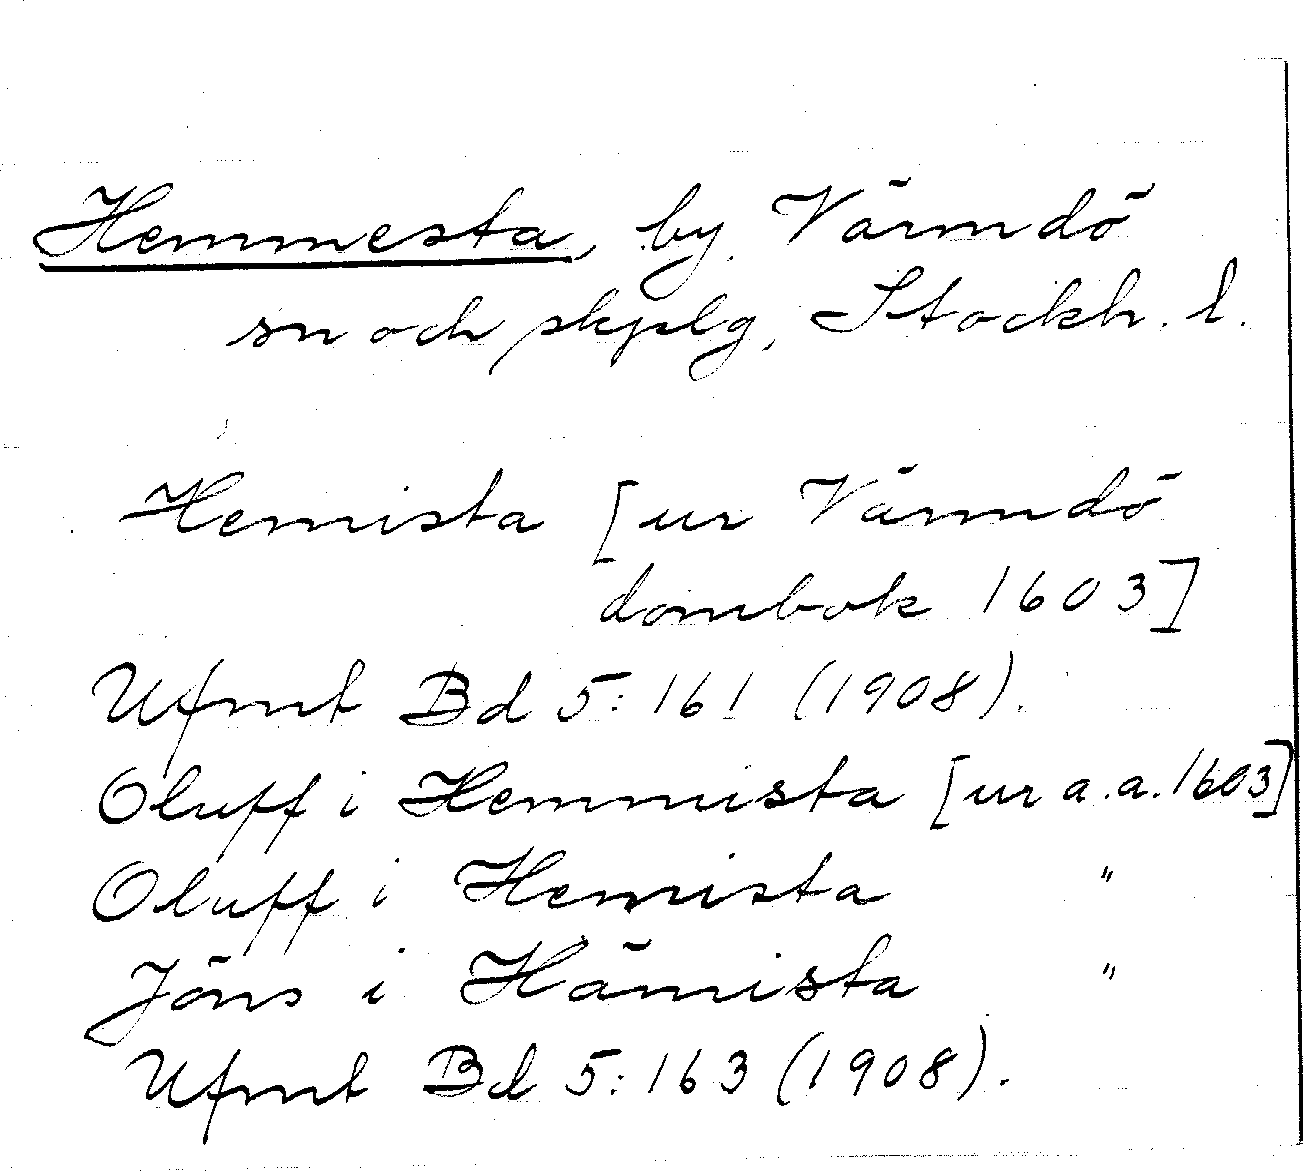 Hemmesta, by, Värmdö
sn och skplg, Stockh. l.
Hemista [ur Värmdö
dombok 1603]
Ufmt Bd 5:161 (1908).
Oluff i Hemmista [ur a.a. 1603]
Oluff i Hemista "
Jöns i Hämista "
Ufmt Bd 5:163 (1908).